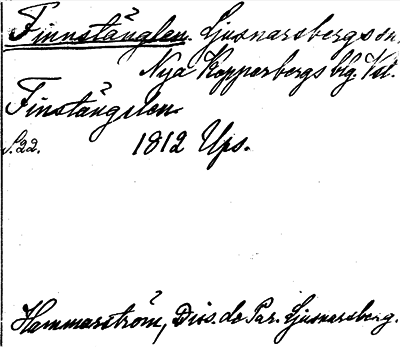 Finnstänglen. Ljusnarsbergs sn.
Nya Kopperbergs blg. Vstl.
Finstängslen
S. 22. 1812 Ups.
Hammarström, Diss. de Par. Ljusnarsberg.